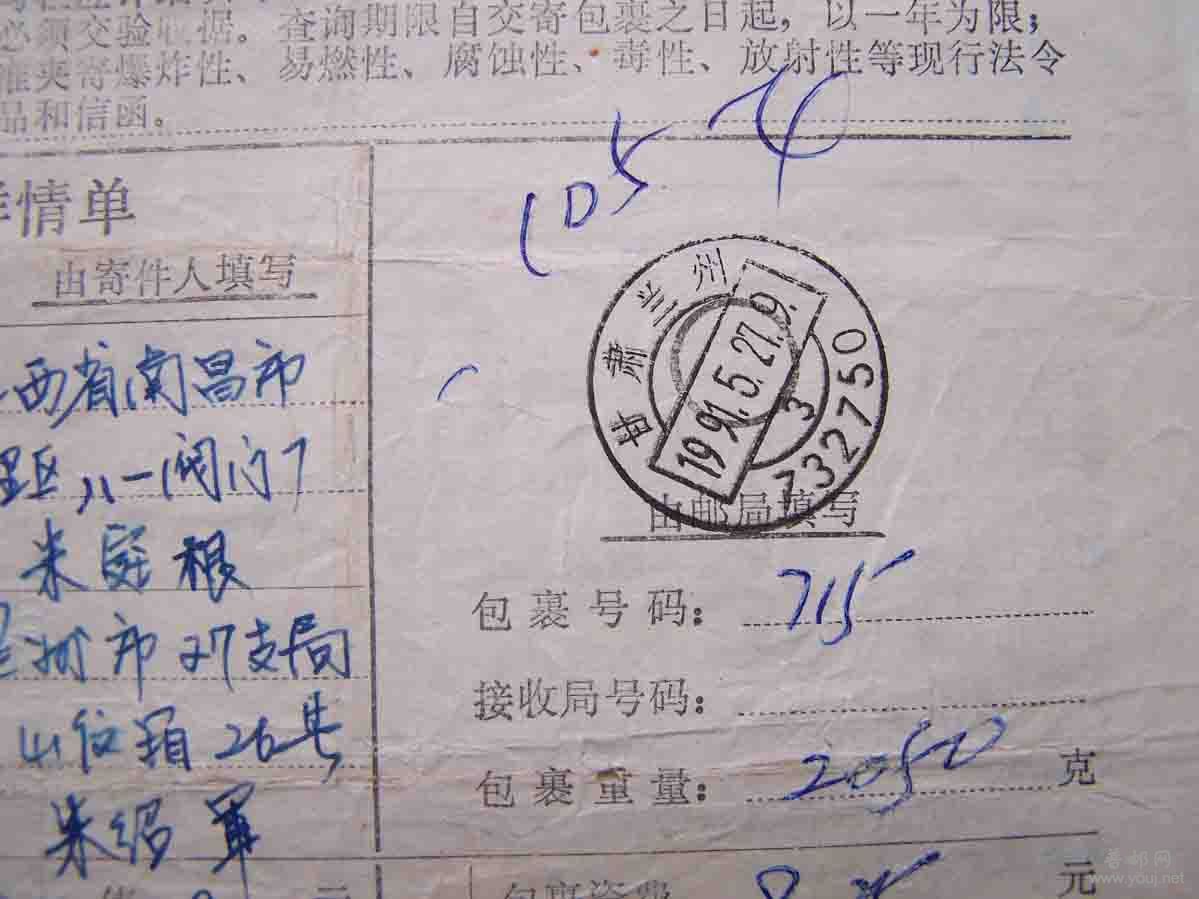 必须交验收据。查询期限自交寄包裹之日起，以一年为限；
准夹寄爆炸性、易燃性、腐蚀性、毒性、放射性等现行法令
品和信函。
详情单
由寄件人填写
西省南昌市
里区八一闸门
朱庭根
州市27支局
信箱26号
朱绍军
元
105
甘肃兰州
1991.5.27.9.
3
732750
由邮局填写
包裹号码：715
接收局号码：
包裹重量：2050克
包裹资费
元
普邮网
www.youj.net